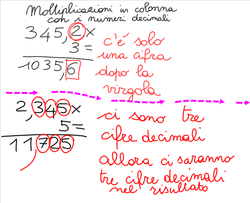 Moltiplicazioni in colonna
con i numeri decimali
345,2x
3=
1035,6
c'è solo
una cifra
dopo la
virgola
2,345x
5=
11,725
ci sono tre
cifre decimali
allora ci saranno
tre cifre decimali
nel risultato